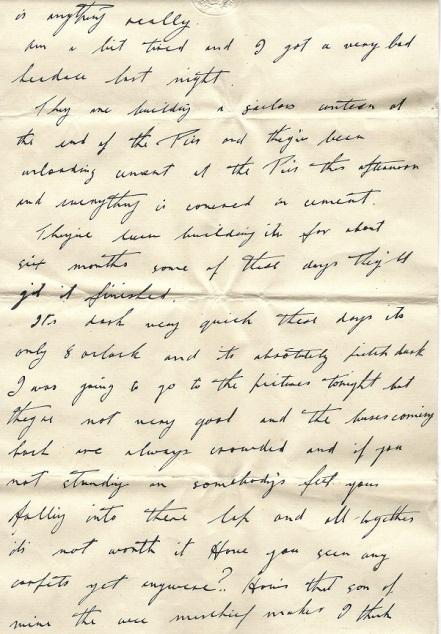 is anything really.
Am a bit tired and I got a very bad
headace last night.
They are building a sailors canteen at
the end of the Pier and they've been
unloading cement at the Pier this afternoon
and everything is covered in cement.
They've been building it for about
six months some of these days they'll
get it finished.
It's dark very quick these days its
only 8 oclock and its absolutely pitch dark
I was going to go to the pictures tonight but
they're not very good and the buses coming
back are always crowded and if you
not standing on somebody's feet your
falling into there lap and all-together
it's not worth it Have you seen any
carpets yet anywere? How's that son of
mine the wee mischief maker I think